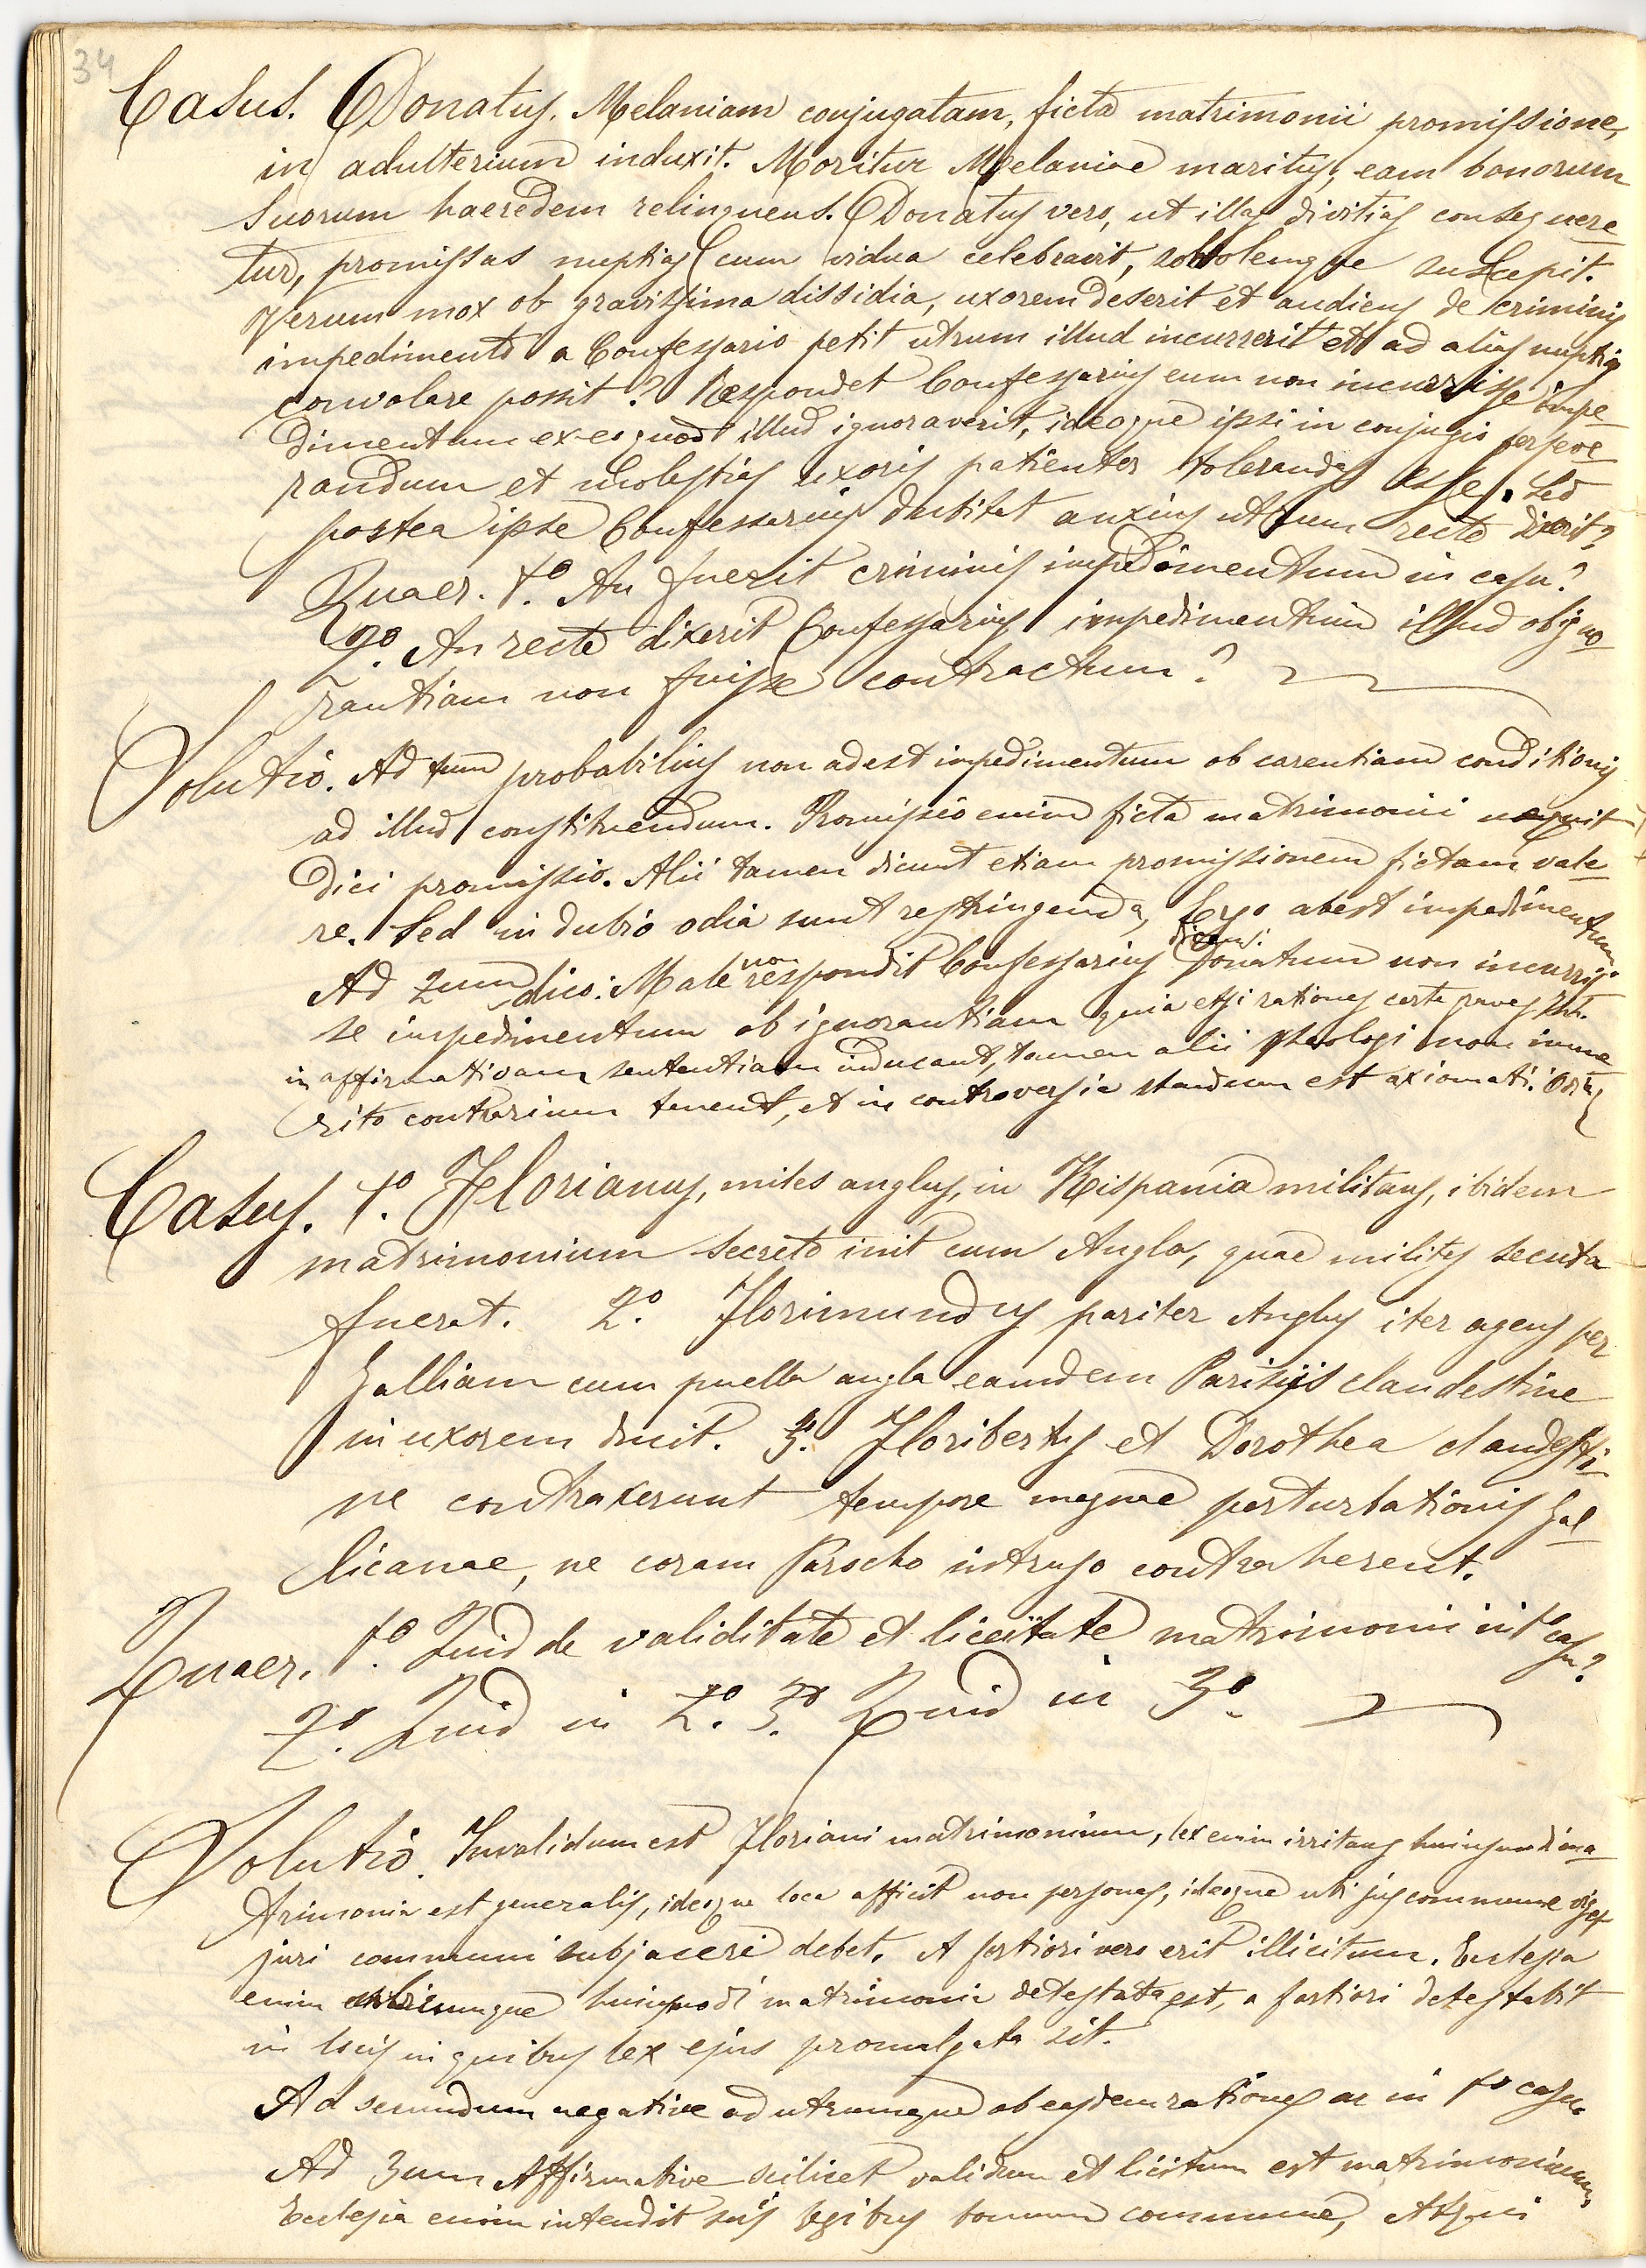 34
Casus. Donatus. Melaniam conjugatam, ficta matrimonii promissione,
in adulterium induxit. Moritur Melaniae maritus, eam bonorum
suorum haeredem relinquens. Donatus vero, ut illas divitias consequere-
tur, promissas nuptias cum vidua celebravit, sobolemque suscepit.
Verum mox ob gravissima dissidia, uxorem deserit et audiens de criminis
impedimento a Confessario petit utrum illud incurrerit et ad alias nuptias
convolare possit? Respondet Confessarius eum non incurrisse impe-
dimentum ex eo quod illud ignoraverit, ideoque ipsi in conjugio perseve-
randum et molestias uxoris patienter tolerandas esse. Sed
postea ipse Confessarius dubitat anxius utrum recte dixerit?
Quaer. 1o. An fuerit criminis impedimentum in casu?
2o. An recte dixerit Confessarius impedimentum illud ob igno-
rantiam non fuisse contractum?
Solutio. Ad 1um probabilius non adest impedimentum ob carentiam conditionis
ad illud constituendum. Promissio enim ficta matrimonii nequit
dici promissio. Alii tamen dicunt etiam promissionem fictam vale-
re. Sed in dubio odia sunt restringenda, Ergo abest impedimentum.
Ad 2um dico: Male non respondit Confessarius dicens: Donatum non incurris-
se impedimentum ob ignorantiam quia etsi rationes certe graves sint.
in affirmativam sententiam inducant, tamen alii theologi non imme-
rito contrarium tenent, et in controversia standum est axiomati: Odia
Casus. 1o. Florianus, miles anglus, in Hispania militans, ibidem
matrimonium secreto init cum Angla, quae milites secuta
fuerat. 2o. Florimundus pariter Anglus iter agens per
Galliam cum puella angla eamdem Parisiis clandestine
in uxorem ducit. 3o. Floribertus et Dorothea clandesti-
ne contraxerunt tempore magnae perturbationis Gal-
licanae, ne coram Parocho intruso contraherent.
Quaer. 1o. Quid de validitate et liceitate matrimonii in 1o casu?
2o. Quid in 2o. 3o. Quid in 3o.
Solutio. Invalidum est Floriani matrimonium, lex enim irritans hujusmodi ma-
trimonia est generalis, ideoque loca afficit non personas, ideoque ubi jus commune viget
juri communi subjaceri debet. A fortiori vero erit illicitum. Ecclesia
enim hujusmodi matrimonia detestata est, a fortiori detestabit
in locis in quibus lex ejus promulgata sit.
Ad secundum negative ad utrumque ob easdem rationes ac in 1o casu.
Ad 3um Affirmative scilicet validum et licitum est matrimonium,
Ecclesia enim intendit suis legibus bonum commune, Atqui